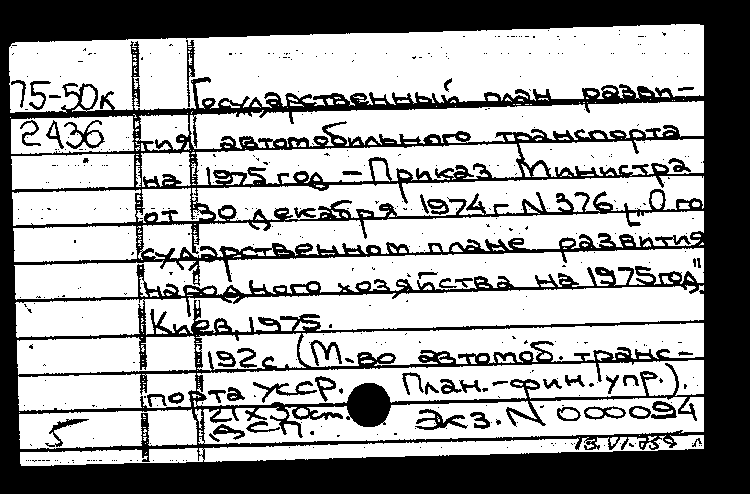 75-50к Государственный план разви-
2436 тия автомобильного транспорта
на 1975 год - Приказ Министра
от 30 декабря 1974 г. N 376 "О го
сударственном плане развития
народного хозяйства на 1975 год".
Киев, 1975.
192 с. (М-во автомоб. транс-
порта УССР. План.-фин. упр.).
21 х 30 cm. Экз. N 000094
5 ДСП.